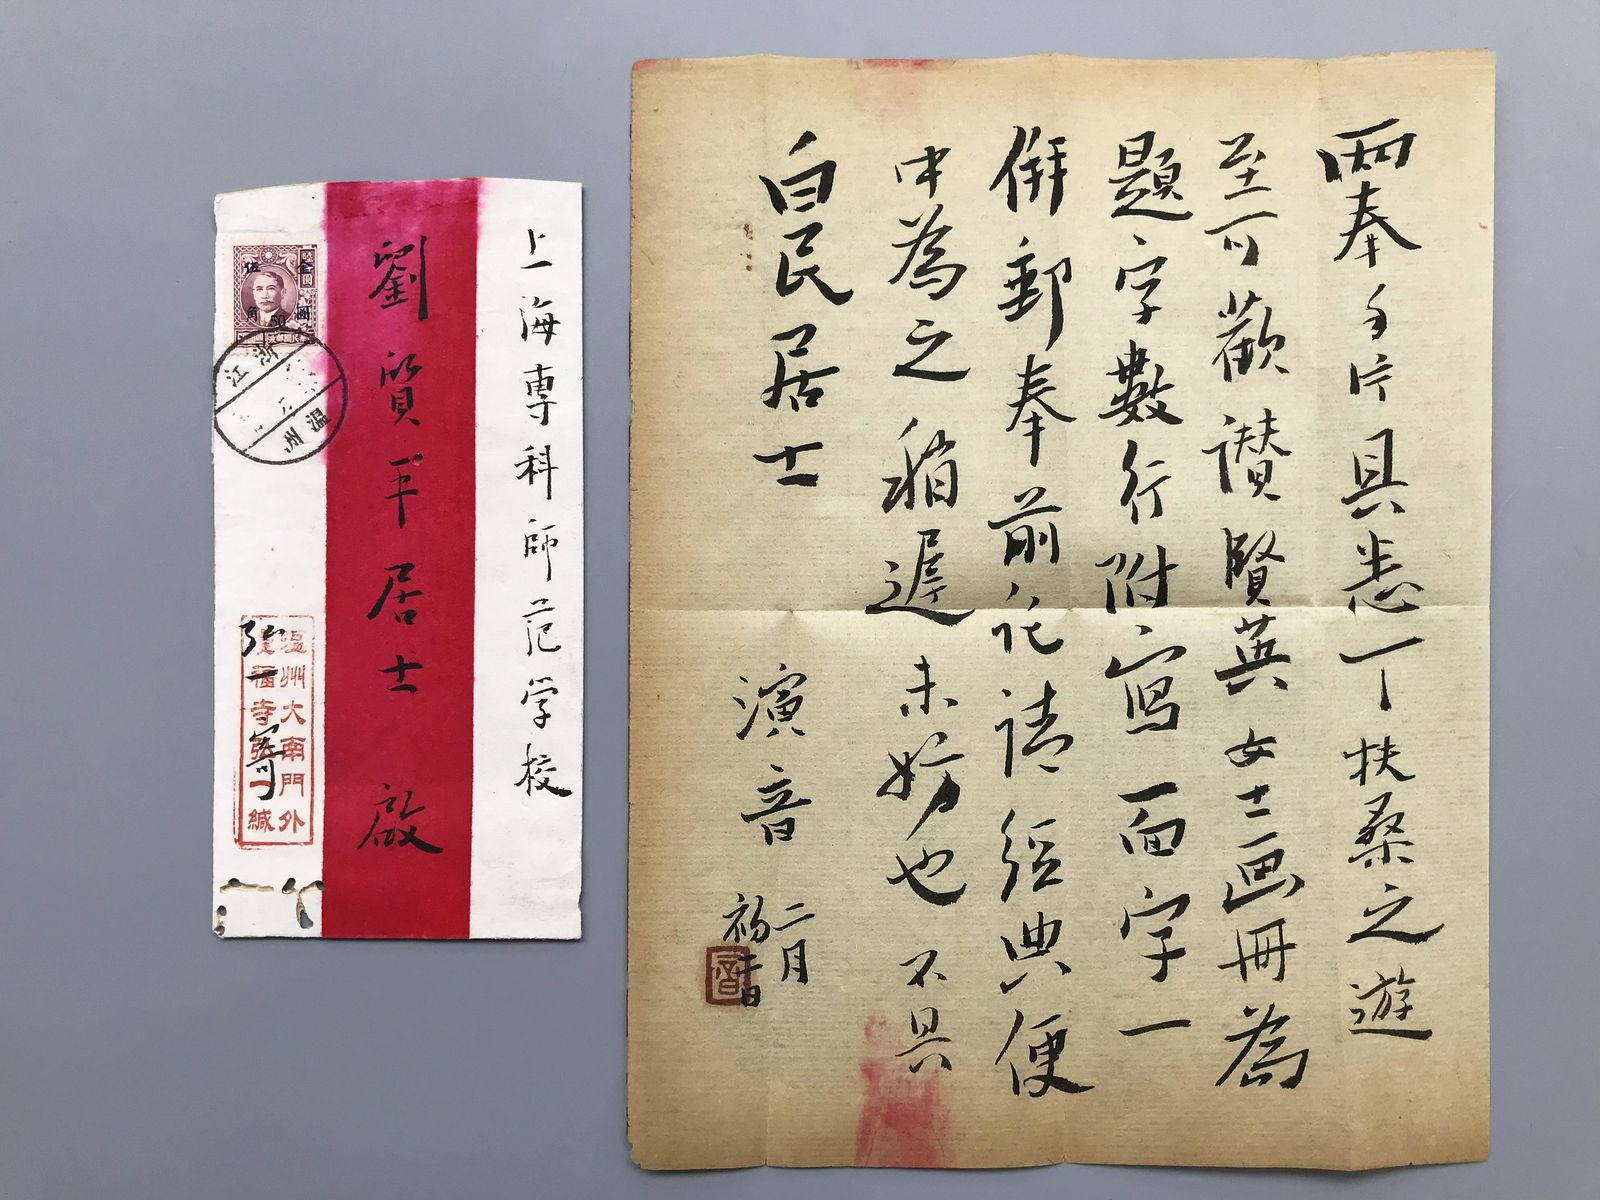 上海專科師范学校
劉質平居士 啟
伍 金
角 圓
50
浙江
温州
温州大南門外
慶福寺弘一緘
弘一寄
兩奉手片具悉一丁扶桑之遊
至可歡讃賢英女士画冊為
題字數行附寫一面字一
併郵奉前托請經典便
中為之稍遲未妨也 不具
白民居士
演音
二月
初二日
音